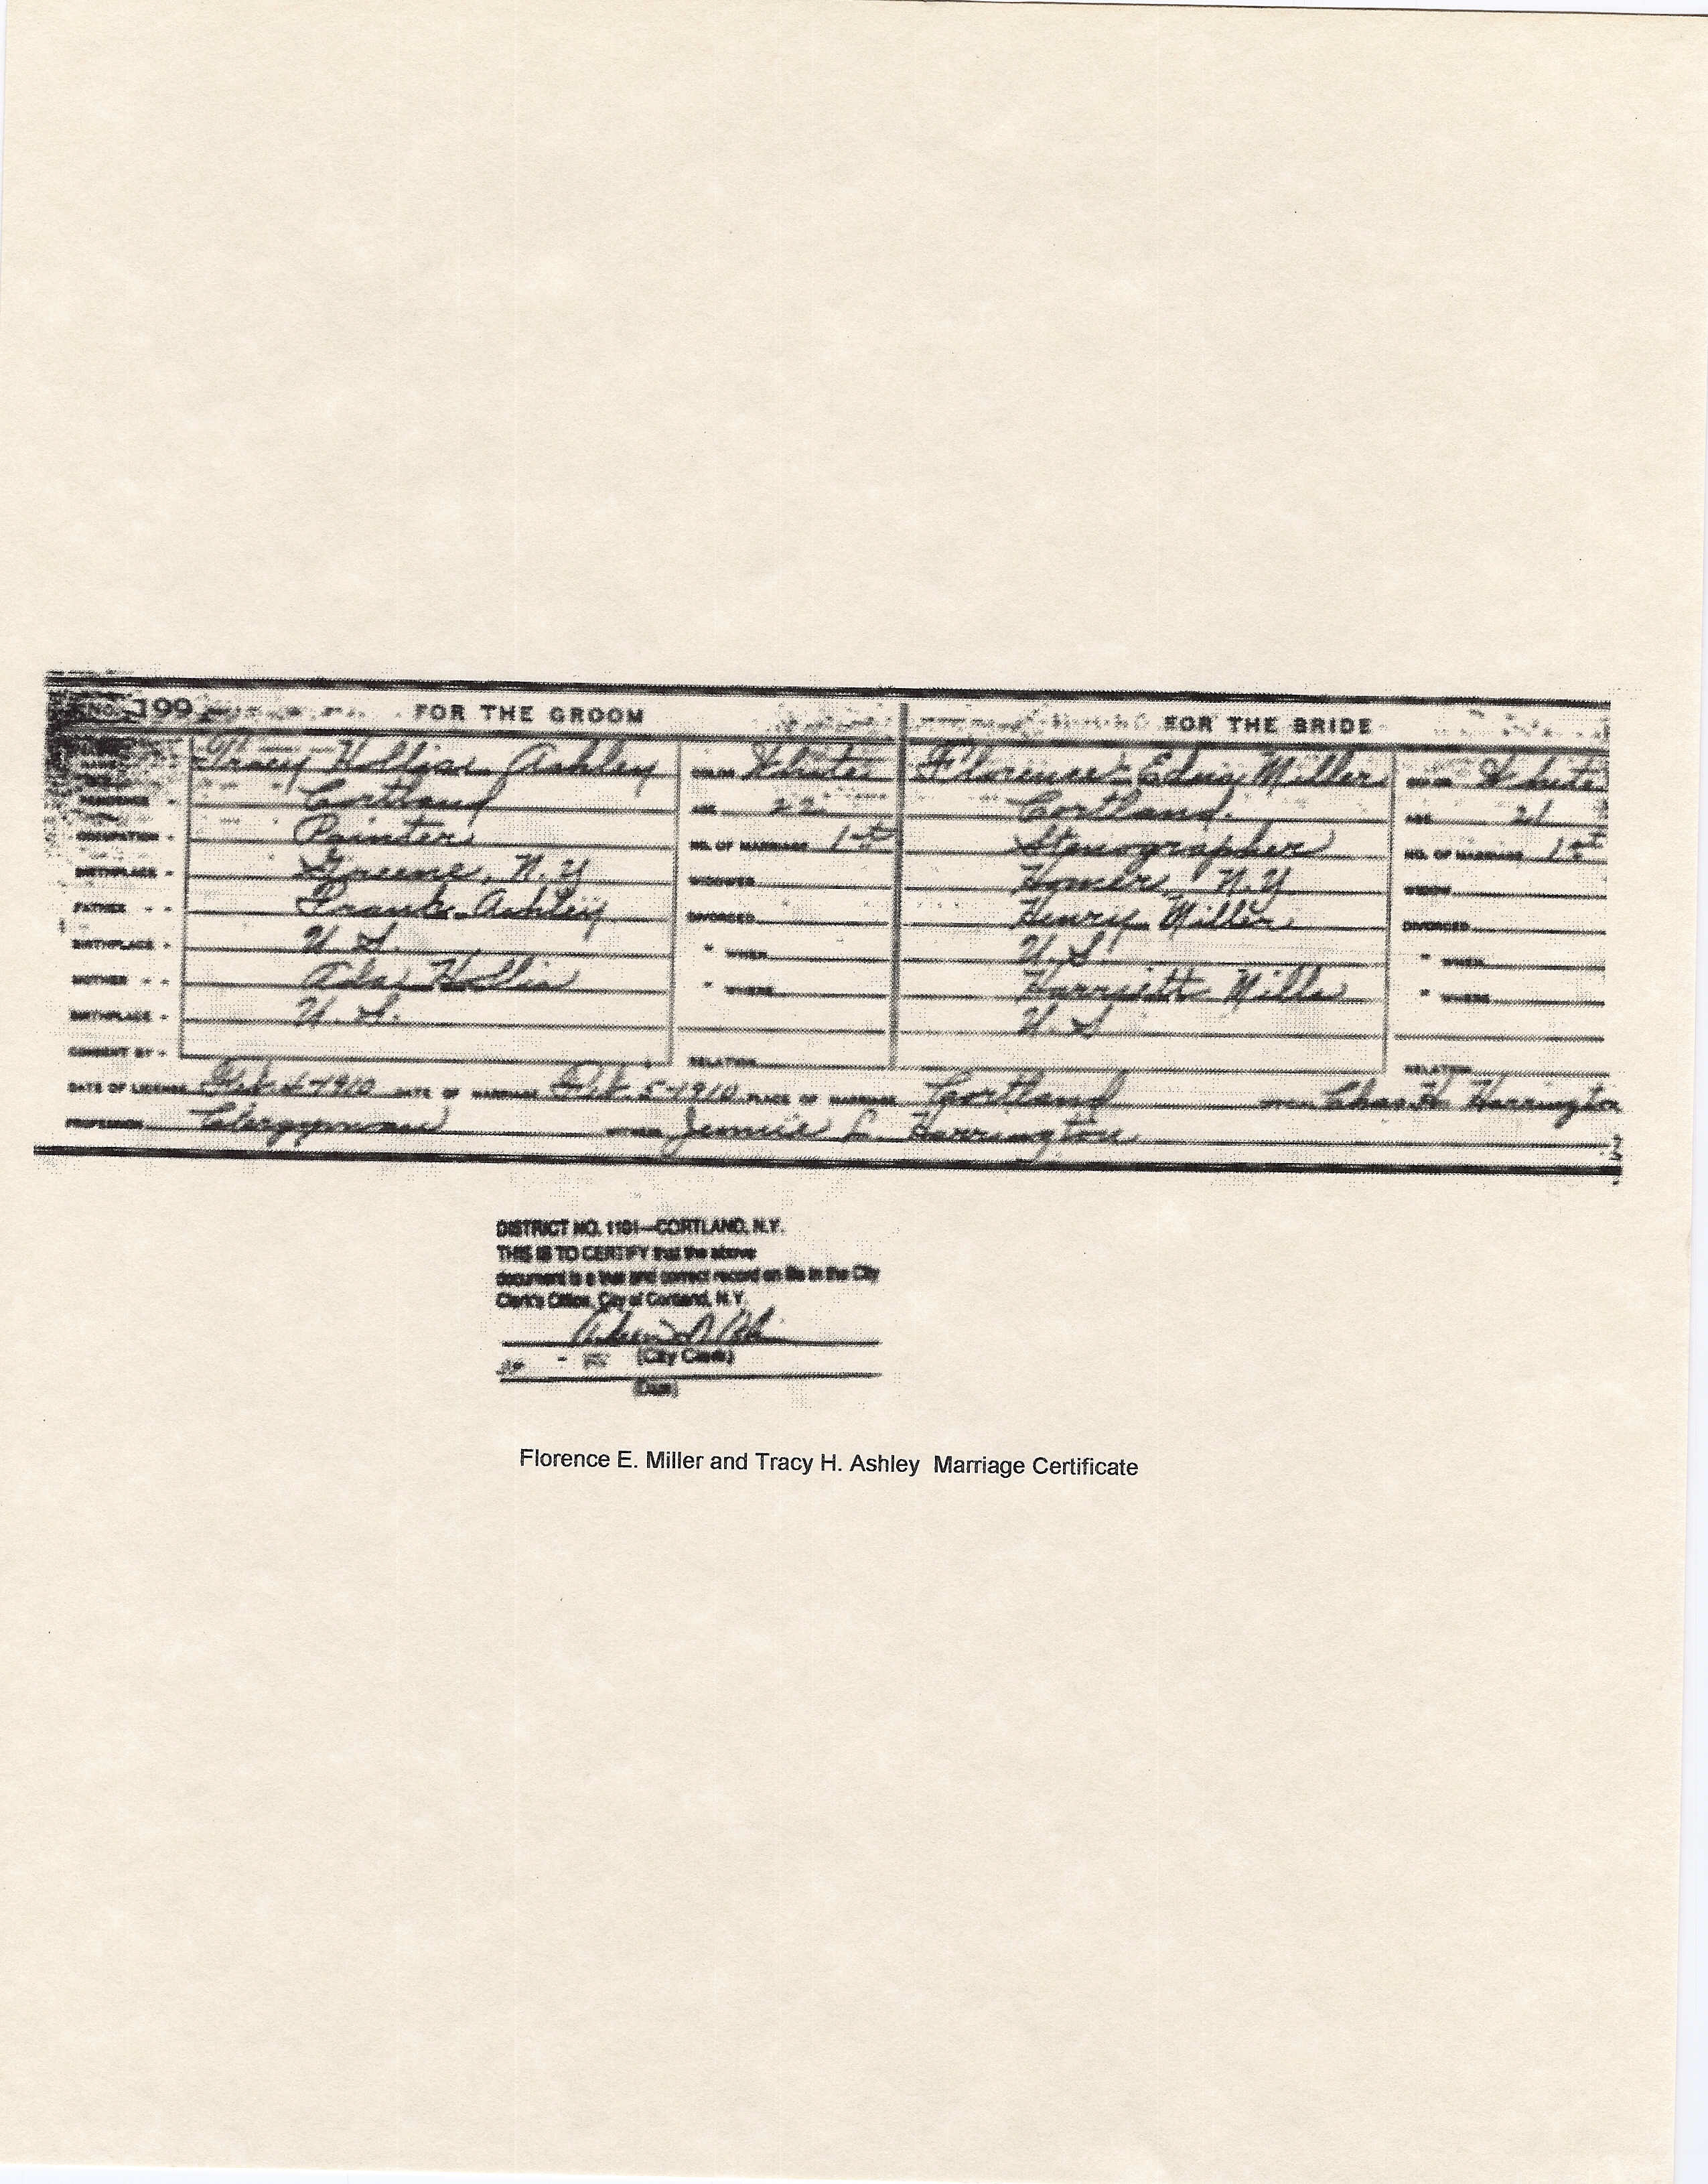 NO. 199 FOR THE GROOM FOR THE BRIDE
NAME Tracy Hollis Ashley COLOR White Florence Edna Miller COLOR White
RESIDENCE - Cortland AGE 22 Cortland. AGE 21
OCCUPATION - Painter NO. OF MARRIAGE 1st Stenographer NO. OF MARRIAGE 1st
BIRTHPLACE - Greene, N.Y WIDOWER Homer, N.Y WIDOW
FATHER - - Frank Ashley DIVORCED Henry Miller DIVORCED
BIRTHPLACE - U.S. " WHEN U.S. " WHEN
MOTHER - - Ada Hollis " WHERE Harriett Mills " WHERE
BIRTHPLACE - U.S. U.S
CONSENT BY - RELATION RELATION
DATE OF LICENSE Feb. 4-1910 DATE OF MARRIAGE Feb. 5-1910 PLACE OF MARRIAGE Cortland Chas. H. Harrington
PROFESSION Clergyman WITNESS Jennie L. Harrington
DISTRICT NO. 1101—CORTLAND, N.Y.
THIS IS TO CERTIFY that the above
document is a true and correct record on file in the City
Clerk's Office, City of Cortland, N.Y.
(City Clerk)
(Date)
Florence E. Miller and Tracy H. Ashley Marriage Certificate